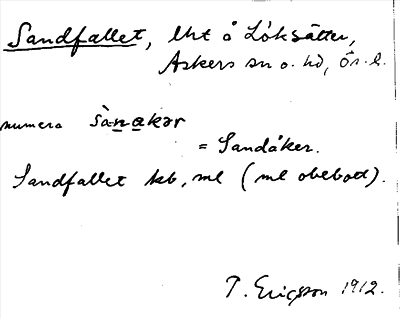 Sandfallet, lht å Löksätter,
Askers sn o. hd, Ör. l.
numera sànakǝr
= Sandåker.
Sandfallet kb, ml (ml obebott).
T. Ericsson 1912.